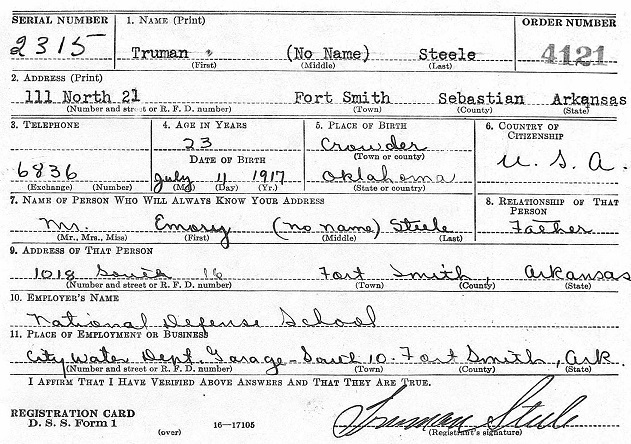 SERIAL NUMBER 1. NAME (Print) ORDER NUMBER
2315 Truman (No Name) Steele 4121
(First) (Middle) (Last)
2. ADDRESS (Print)
111 North 21 Fort Smith Sebastian Arkansas
(Number and street or R. F. D. number) (Town) (County) (State)
3. TELEPHONE 4. AGE IN YEARS 5. PLACE OF BIRTH 6. COUNTRY OF CITIZENSHIP
23 Crowder
DATE OF BIRTH (Town or county) U.S.A.
6836 July 11 1917 Oklahoma
(Exchange) (Number) (Mo.) (Day) (Yr.) (State or country)
7. NAME OF PERSON WHO WILL ALWAYS KNOW YOUR ADDRESS 8. RELATIONSHIP OF THAT PERSON
Mr. Emory (no name) Steele Father
(Mr., Mrs., Miss) (First) (Middle) (Last)
9. ADDRESS OF THAT PERSON
1018 South 16 Fort Smith, Arkansas
(Number and street or R. F. D. number) (Town) (County) (State)
10. EMPLOYER'S NAME
National Defense School
11. PLACE OF EMPLOYMENT OR BUSINESS
City Water Dept. Garage - South 10 - Fort Smith, Ark.
(Number and street or R. F. D. number) (Town) (County) (State)
I AFFIRM THAT I HAVE VERIFIED ABOVE ANSWERS AND THAT THEY ARE TRUE.
REGISTRATION CARD
D. S. S. Form 1 16—17105 Truman Steele
(over) (Registrant's signature)